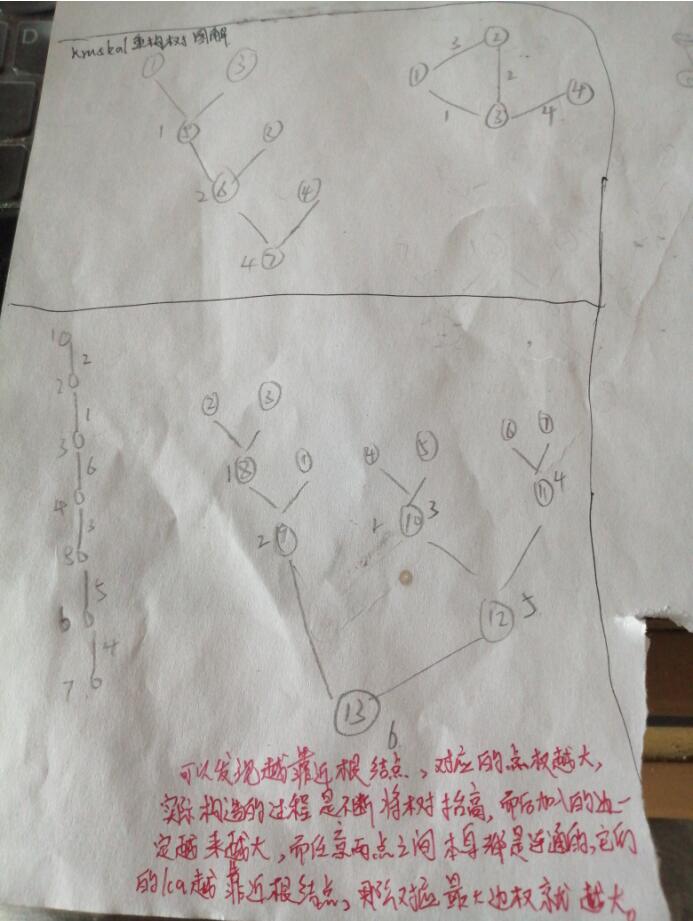 kruskal重构树图解
① ③
3 ②
① 2
1 ⑤ ②
1 ③ 4 ④
2 ⑥ ④
4 ⑦
1
2
2
1
3
6
4
3
5
5
6
4
7
② ③
1 ⑧ ①
④ ⑤
⑥ ⑦
2 ⑨
⑩ 3
⑪ 4
⑫ 5
⑬ 6
可以发现越靠近根结点,对应的点权越大,
实际构造的过程是不断将树抬高,而后加入的边一
定越来越大,而任意两点之间本身就是连通的,它们
的lca越靠近根结点,那么对应最大边权就越大。